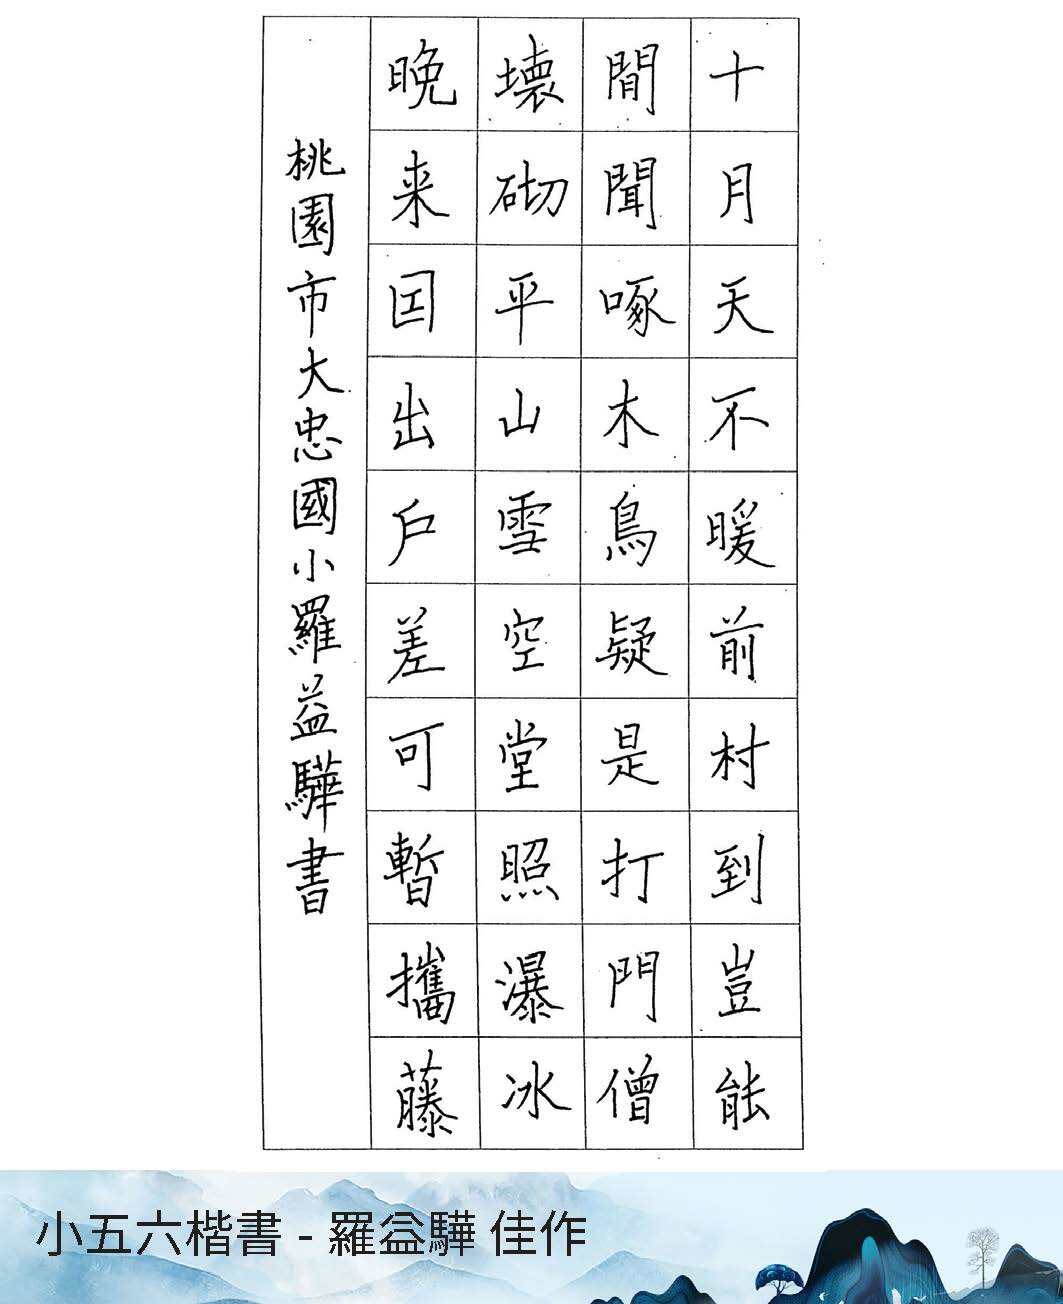 十月天不暖前村到豈能
間聞啄木鳥疑是打門僧
壞砌平山雪空堂照瀑冰
晚来因出戶差可暫攜藤
桃園市大忠國小羅益驊書
小五六楷書 - 羅益驊 佳作